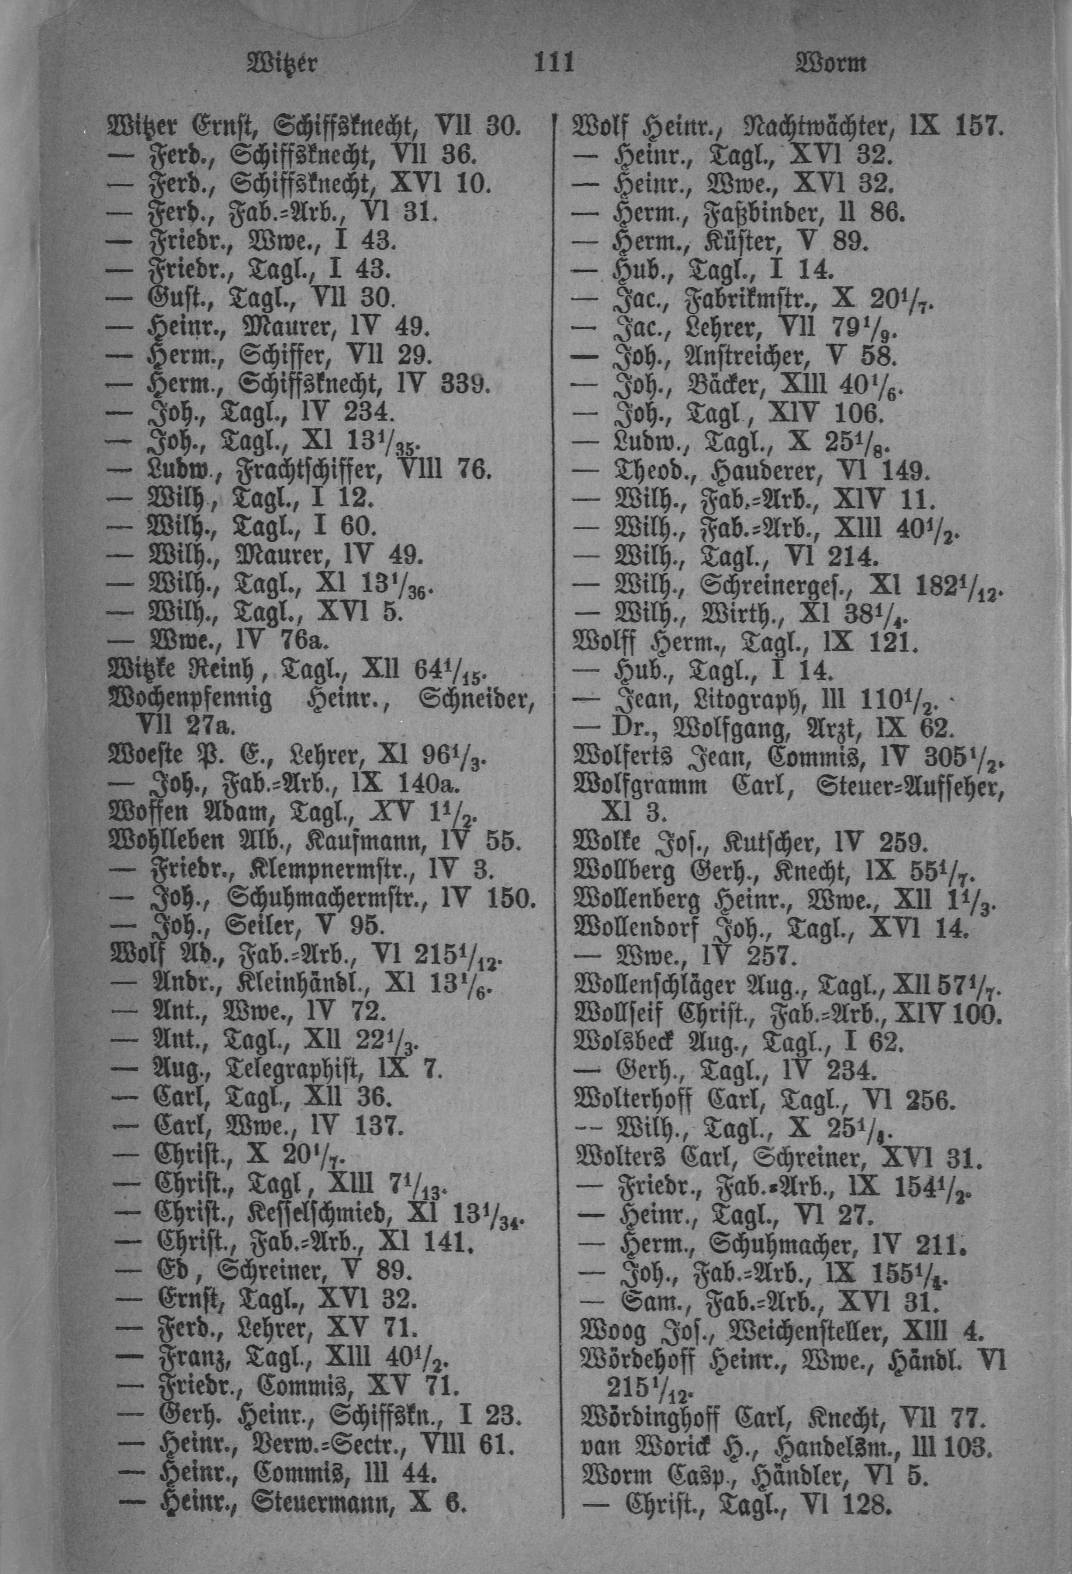 Witzer 111 Worm
Witzer Ernst, Schiffsknecht, VII 30.
— Ferd., Schiffsknecht, VII 36.
— Ferd., Schiffsknecht, XVI 10.
— Ferd., Fab.=Arb., VI 31.
— Friedr., Wwe., I 43.
— Friedr., Tagl., I 43.
— Gust., Tagl., VII 30.
— Heinr., Maurer, IV 49.
— Herm., Schiffer, VII 29.
— Herm., Schiffsknecht, IV 339.
— Joh., Tagl., IV 234.
— Joh., Tagl., XI 13 1/35.
— Ludw., Frachtschiffer, VIII 76.
— Wilh., Tagl., I 12.
— Wilh., Tagl., I 60.
— Wilh., Maurer, IV 49.
— Wilh., Tagl., XI 13 1/36.
— Wilh., Tagl., XVI 5.
— Wwe., IV 76a.
Witzke Reinh, Tagl., XII 64 1/15.
Wochenpfennig Heinr., Schneider,
VII 27a.
Woeste P. E., Lehrer, XI 96 1/3.
— Joh., Fab.=Arb., IX 140a.
Woffen Adam, Tagl., XV 1 1/2.
Wohlleben Alb., Kaufmann, IV 55.
— Friedr., Klempnermstr., IV 3.
— Joh., Schuhmachermstr., IV 150.
— Joh., Seiler, V 95.
Wolf Ad., Fab.=Arb., VI 215 1/12.
— Andr., Kleinhändl., XI 13 1/6.
— Ant., Wwe., IV 72.
— Ant., Tagl., XII 22 1/3.
— Aug., Telegraphist, IX 7.
— Carl, Tagl., XII 36.
— Carl, Wwe., IV 137.
— Christ., X 20 1/7.
— Christ., Tagl, XIII 7 1/13.
— Christ., Kesselschmied, XI 13 1/34.
— Christ., Fab.=Arb., XI 141.
— Ed, Schreiner, V 89.
— Ernst, Tagl., XVI 32.
— Ferd., Lehrer, XV 71.
— Franz, Tagl., XIII 40 1/2.
— Friedr., Commis, XV 71.
— Gerh. Heinr., Schiffskn., I 23.
— Heinr., Verw.=Sectr., VIII 61.
— Heinr., Commis, III 44.
— Heinr., Steuermann, X 6.
Wolf Heinr., Nachtwächter, IX 157.
— Heinr., Tagl., XVI 32.
— Heinr., Wwe., XVI 32.
— Herm., Faßbinder, II 86.
— Herm., Küster, V 89.
— Hub., Tagl., I 14.
— Jac., Fabrikmstr., X 20 1/7.
— Jac., Lehrer, VII 79 1/9.
— Joh., Anstreicher, V 58.
— Joh., Bäcker, XIII 40 1/6.
— Joh., Tagl, XIV 106.
— Ludw., Tagl., X 25 1/8.
— Theod., Hauderer, VI 149.
— Wilh., Fab.=Arb., XIV 11.
— Wilh., Fab.=Arb., XIII 40 1/2.
— Wilh., Tagl., VI 214.
— Wilh., Schreinerges., XI 182 1/12.
— Wilh., Wirth., XI 38 1/4.
Wolff Herm., Tagl., IX 121.
— Hub., Tagl., I 14.
— Jean, Litograph, III 110 1/2.
— Dr., Wolfgang, Arzt, IX 62.
Wolferts Jean, Commis, IV 305 1/2.
Wolfgramm Carl, Steuer=Aufseher,
XI 3.
Wolke Jos., Kutscher, IV 259.
Wollberg Gerh., Knecht, IX 55 1/7.
Wollenberg Heinr., Wwe., XII 1 1/3.
Wollendorf Joh., Tagl., XVI 14.
— Wwe., IV 257.
Wollenschläger Aug., Tagl., XII 57 1/7.
Wollseif Christ., Fab.=Arb., XIV 100.
Wolsbeck Aug., Tagl., I 62.
— Gerh., Tagl., IV 234.
Wolterhoff Carl, Tagl., VI 256.
— Wilh., Tagl., X 25 1/8.
Wolters Carl, Schreiner, XVI 31.
— Friedr., Fab.=Arb., IX 154 1/2.
— Heinr., Tagl., VI 27.
— Herm., Schuhmacher, IV 211.
— Joh., Fab.=Arb., IX 155 1/4.
— Sam., Fab.=Arb., XVI 31.
Woog Jos., Weichensteller, XIII 4.
Wördehoff Heinr., Wwe., Händl. VI
215 1/12.
Wördinghoff Carl, Knecht, VII 77.
van Worick H., Handelsm., III 103.
Worm Casp., Händler, VI 5.
— Christ., Tagl., VI 128.